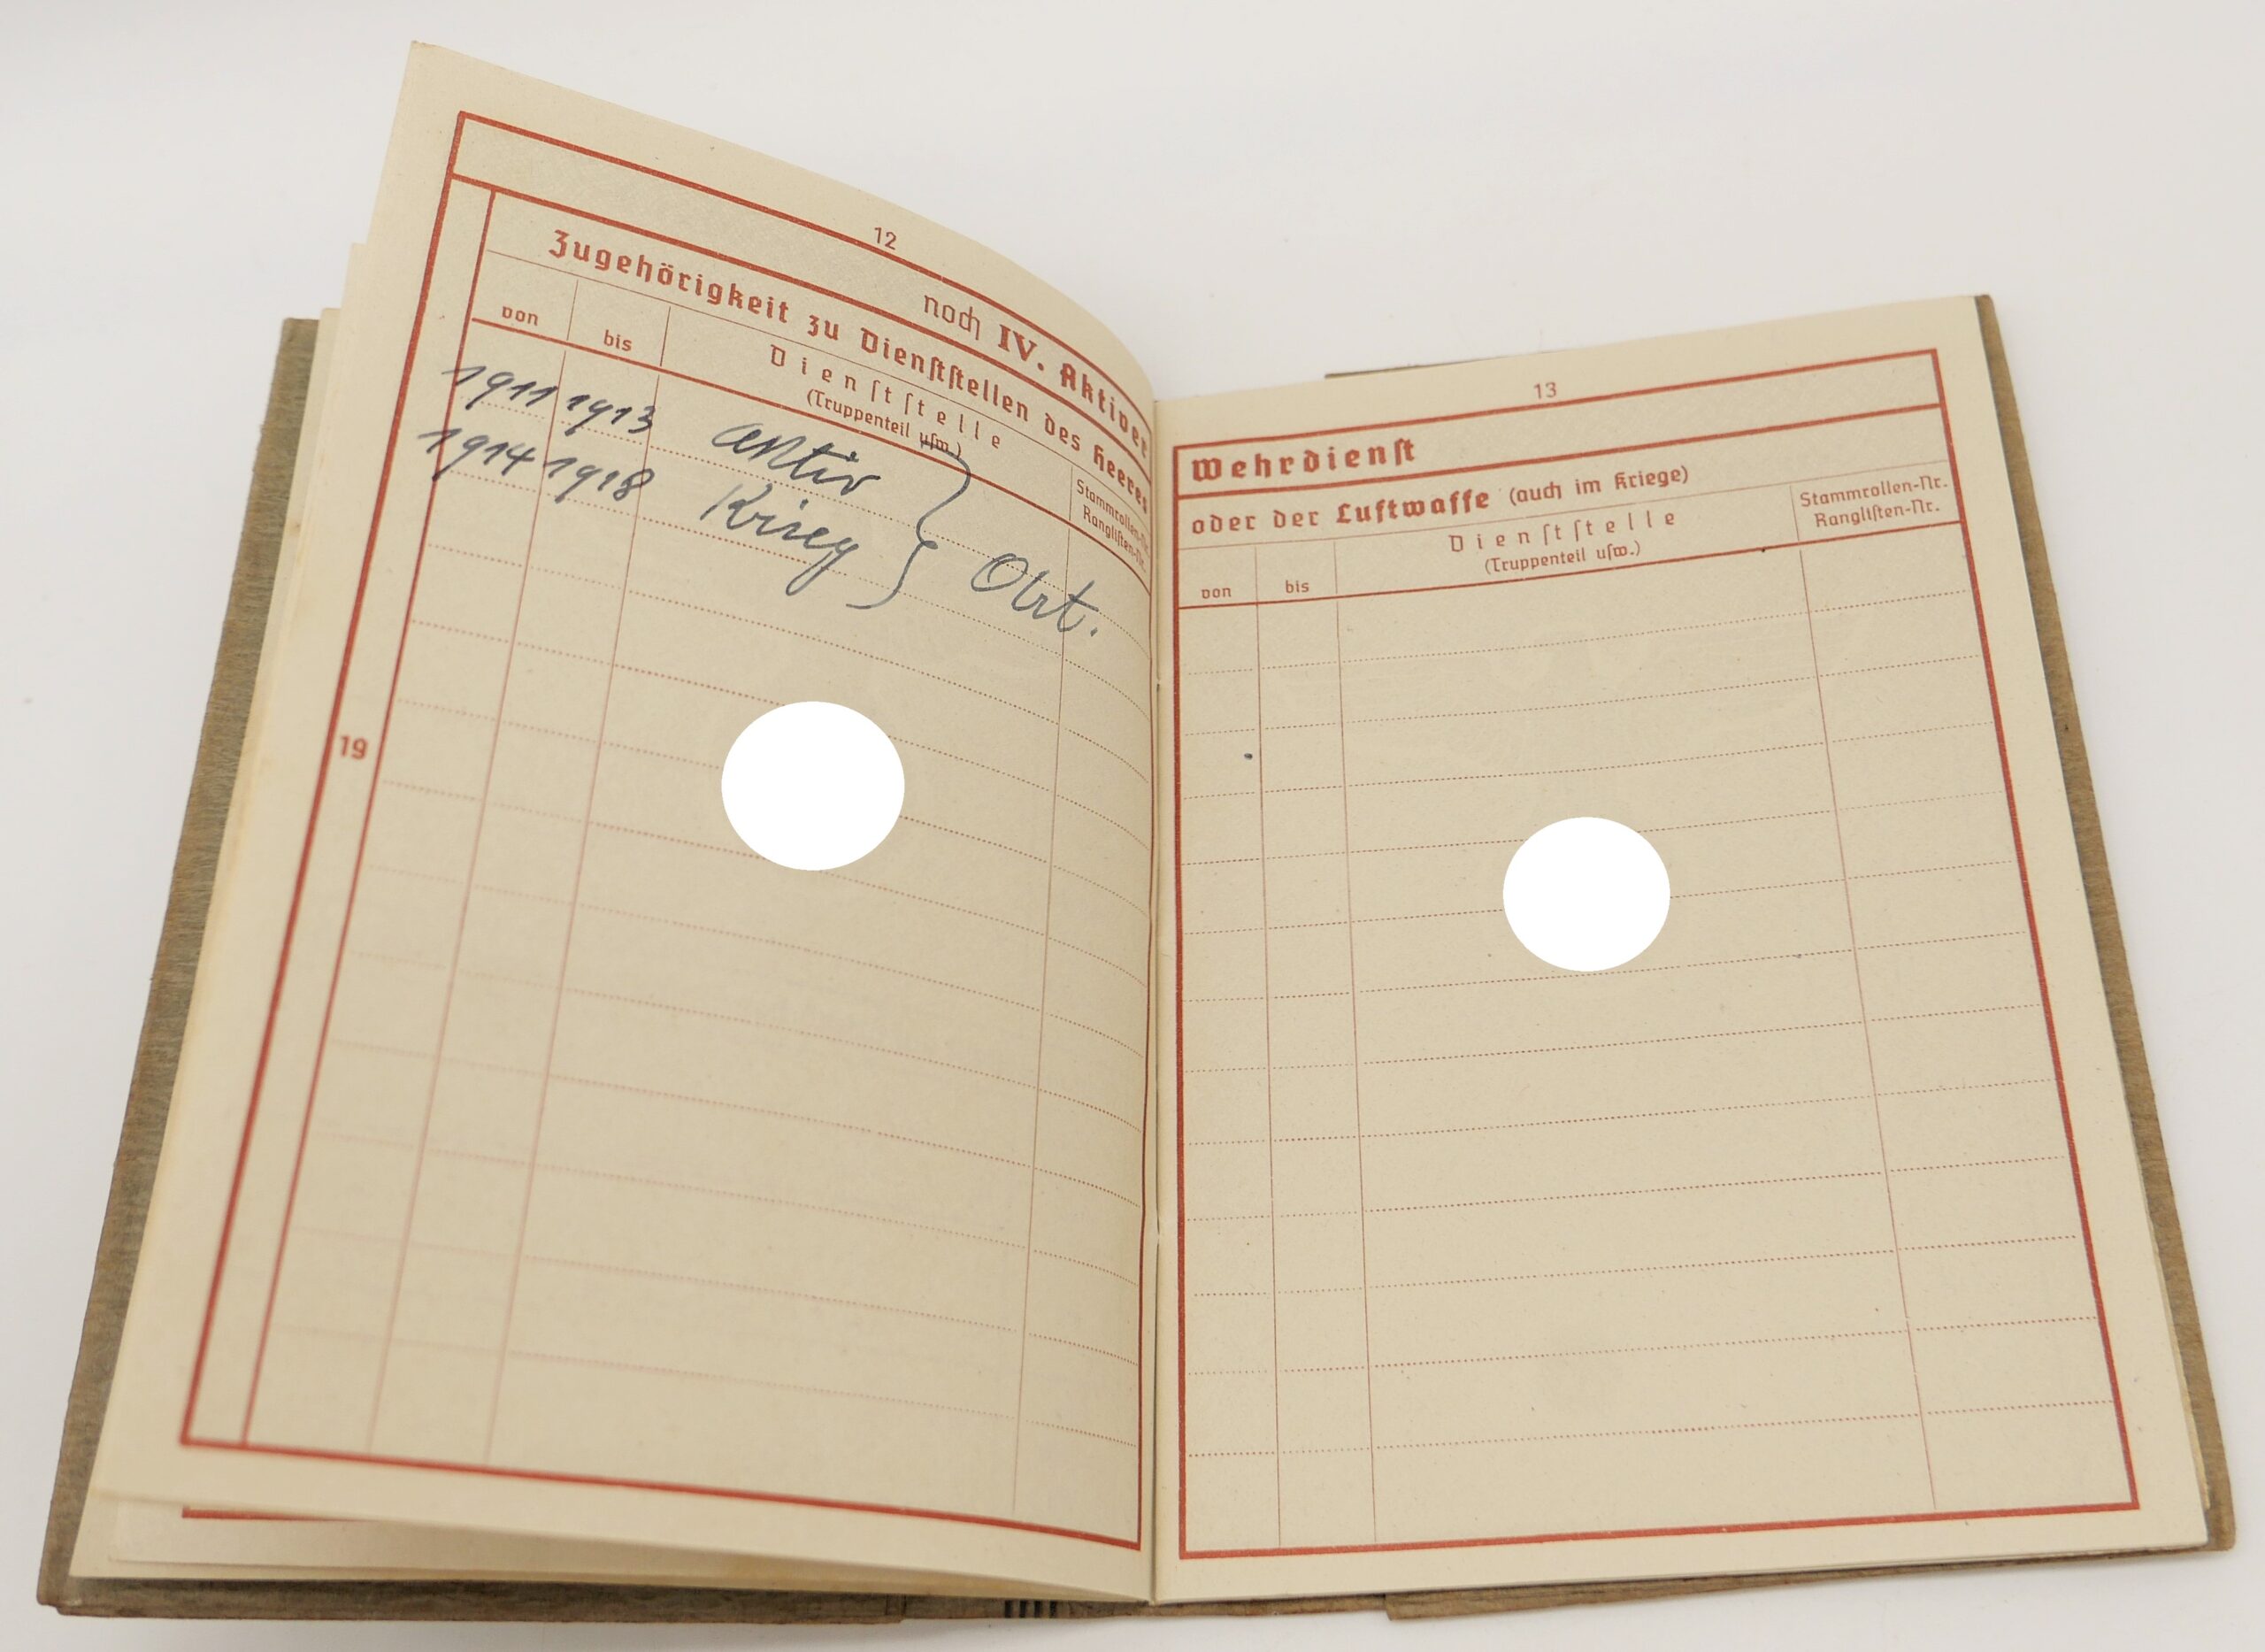 12
noch IV. Aktiver
Zugehörigkeit zu Dienststellen des Heeres
von
bis
Dienststelle
(Truppenteil usw.)
Stammrollen-Nr.
Ranglisten-Nr.
1911 1913 aktiv
1914 1918 Krieg
Oblt.
19
13
Wehrdienst
oder der Luftwaffe (auch im Kriege)
von
bis
Dienststelle
(Truppenteil usw.)
Stammrollen-Nr.
Ranglisten-Nr.